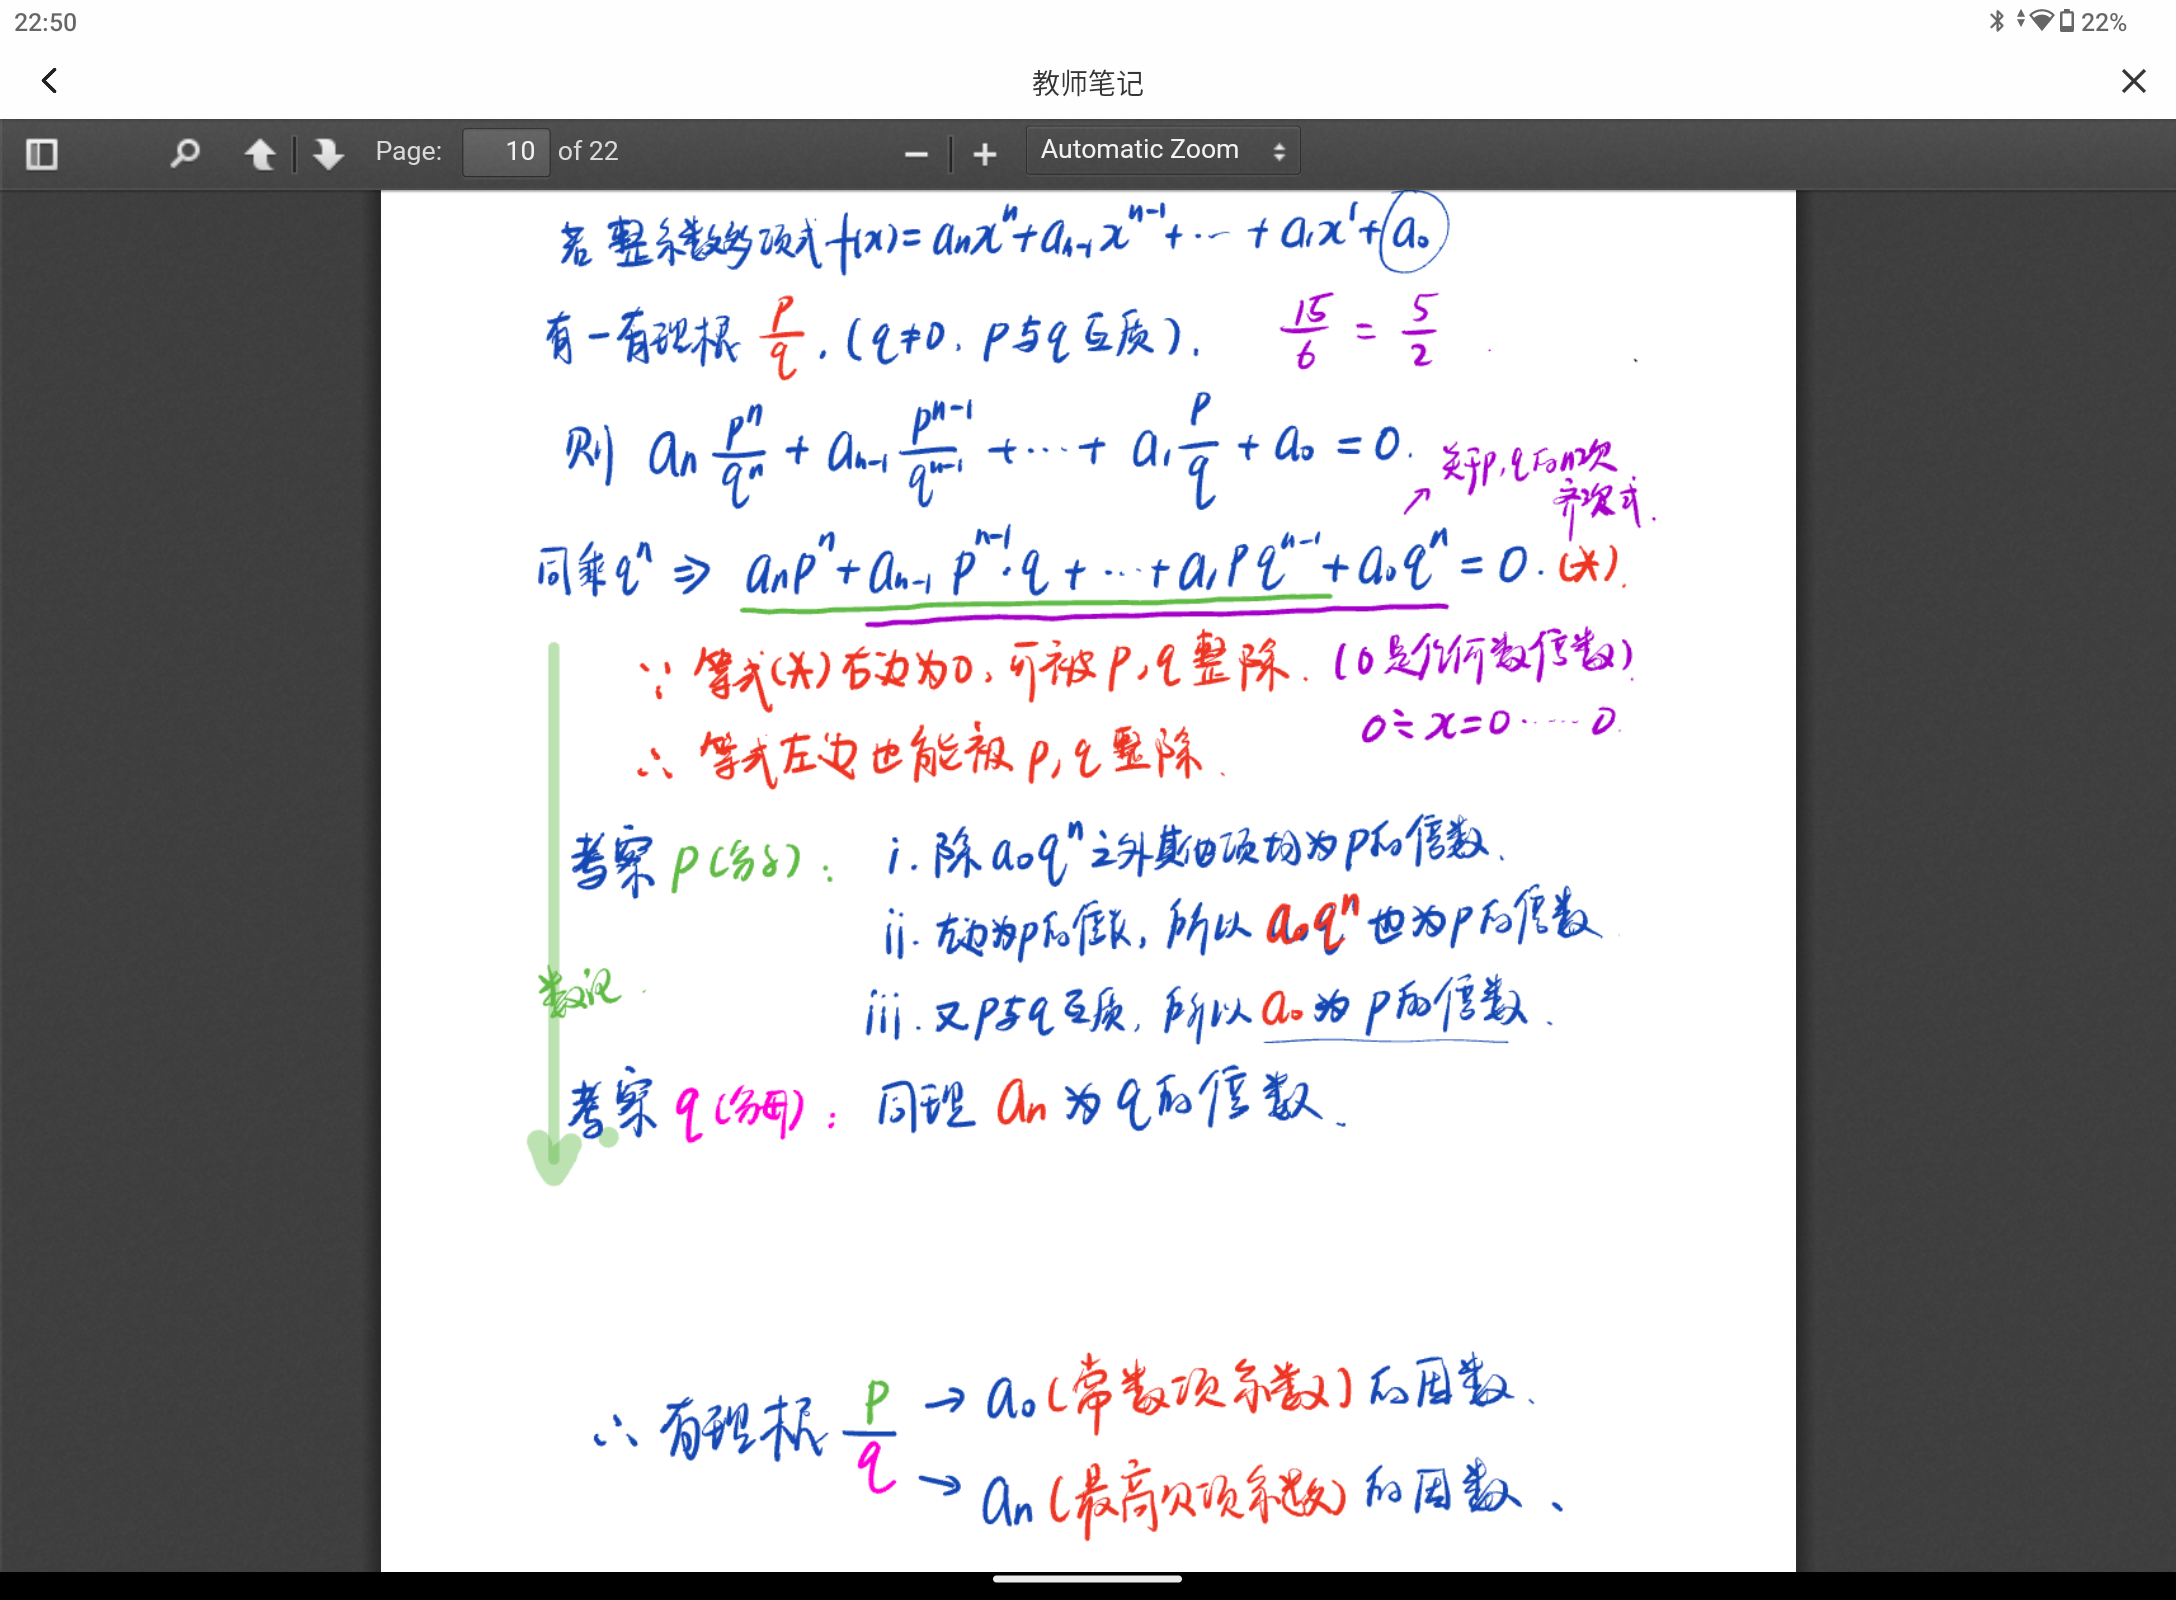 22:50
22%
教师笔记
Page: 10 of 22
Automatic Zoom
若整系数多项式 f(x)=aₙxⁿ+aₙ₋₁xⁿ⁻¹+⋯+a₁x¹+a₀
有一有理根 p/q.(q≠0. p与q互质). 15/6 = 5/2
则 aₙ pⁿ/qⁿ + aₙ₋₁ pⁿ⁻¹/qⁿ⁻¹ +⋯+ a₁ p/q + a₀ = 0.
↗ 关于p,q的n次
齐次式.
同乘qⁿ ⇒ aₙpⁿ+aₙ₋₁pⁿ⁻¹·q+⋯+a₁pqⁿ⁻¹+a₀qⁿ=0.(*).
∵ 等式(*)右边为0,可被p,q整除. (0是任何数倍数).
0÷x=0⋯⋯0.
∴ 等式左边也能被p,q整除.
考察p(分子): i. 除a₀qⁿ之外其他项均为p的倍数.
ii. 左边为p的倍数, 所以a₀qⁿ也为p的倍数
数论
iii. 又p与q互质, 所以a₀为p的倍数.
考察q(分母): 同理 aₙ为q的倍数.
∴ 有理根 p/q → a₀(常数项系数)的因数.
→ aₙ(最高次项系数)的因数.